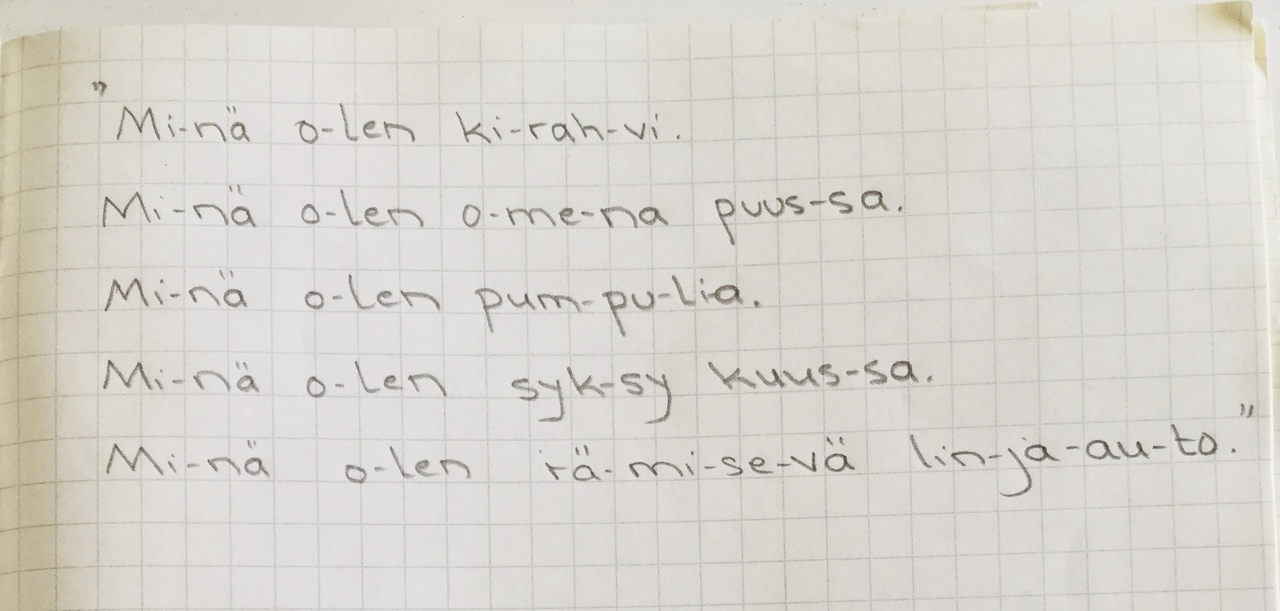 "Mi-nä o-len ki-rah-vi.
Mi-nä o-len o-me-na puus-sa.
Mi-nä o-len pum-pu-lia.
Mi-nä o-len syk-sy kuus-sa.
Mi-nä o-len rä-mi-se-vä lin-ja-au-to."